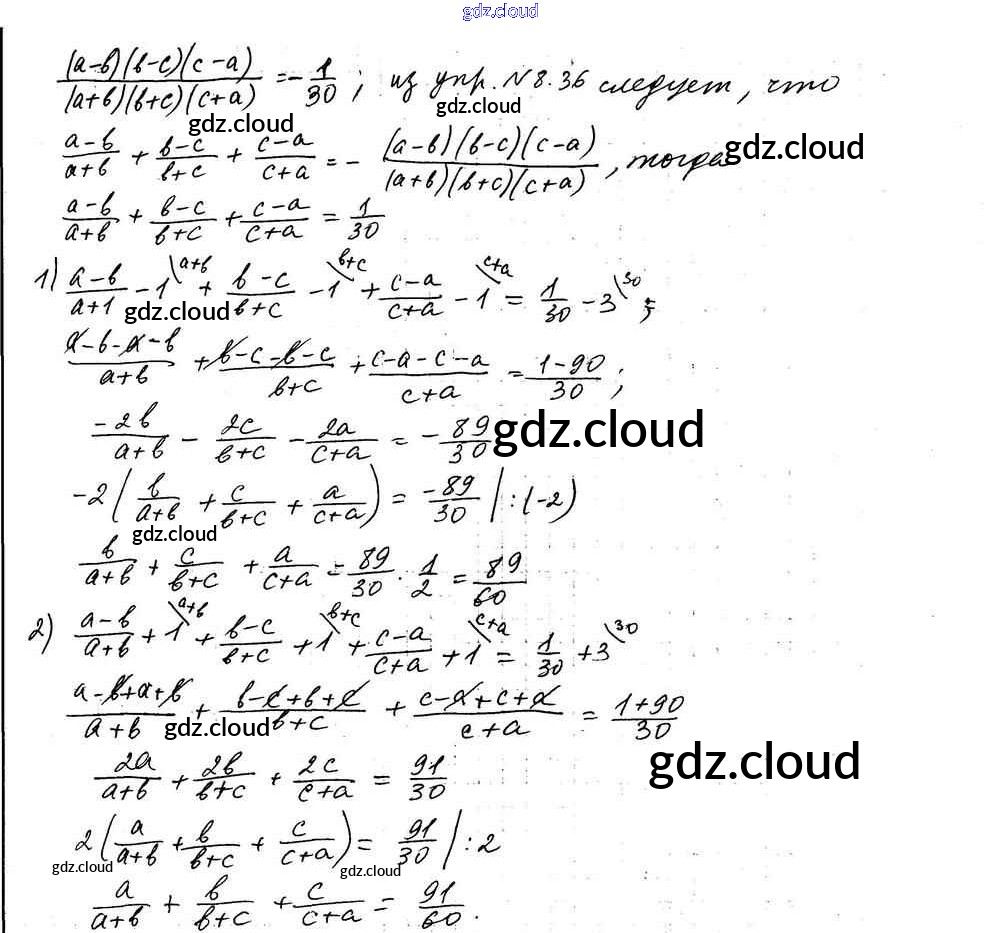 gdz.cloud
(a-b)(b-c)(c-a)/(a+b)(b+c)(c+a) = -1/30; из упр. №8.36 следует, что
gdz.cloud gdz.cloud
(a-b)/(a+b) + (b-c)/(b+c) + (c-a)/(c+a) = - (a-b)(b-c)(c-a)/(a+b)(b+c)(c+a), тогда gdz.cloud
(a-b)/(a+b) + (b-c)/(b+c) + (c-a)/(c+a) = 1/30
1) (a-b)/(a+1) - 1\a+b + (b-c)/(b+c) - 1\b+c + (c-a)/(c+a) - 1\c+a = 1/30 - 3\30;
gdz.cloud
(a-b-a-b)/(a+b) + (b-c-b-c)/(b+c) + (c-a-c-a)/(c+a) = (1-90)/30;
-2b/(a+b) - 2c/(b+c) - 2a/(c+a) = -89/30 gdz.cloud
-2(b/(a+b) + c/(b+c) + a/(c+a)) = -89/30 |:(-2)
gdz.cloud
b/(a+b) + c/(b+c) + a/(c+a) = 89/30 · 1/2 = 89/60
2) (a-b)/(a+b) + 1\a+b + (b-c)/(b+c) + 1\b+c + (c-a)/(c+a) + 1\c+a = 1/30 + 3\30
(a-b+a+b)/(a+b) + (b-c+b+c)/(b+c) + (c-a+c+a)/(c+a) = (1+90)/30
gdz.cloud
2a/(a+b) + 2b/(b+c) + 2c/(c+a) = 91/30 gdz.cloud
2(a/(a+b) + b/(b+c) + c/(c+a)) = 91/30 |:2
gdz.cloud gdz.cloud
a/(a+b) + b/(b+c) + c/(c+a) = 91/60.